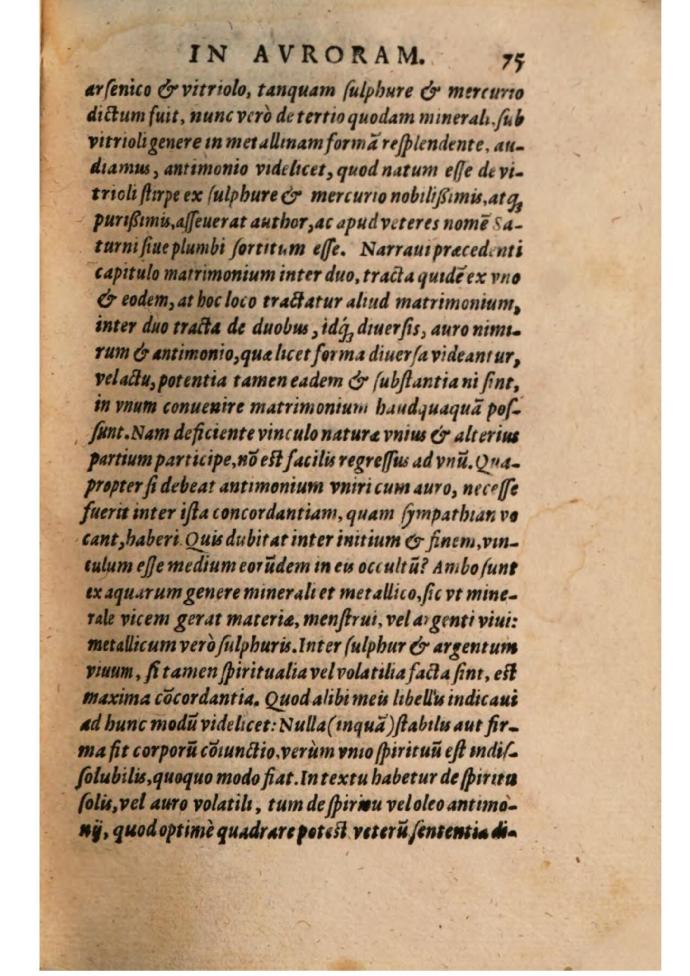 IN AVRORAM. 75
arſenico & vitriolo, tanquam ſulphure & mercurio
dictum fuit, nunc verò de tertio quodam minerali, ſub
vitrioli genere in metallinam formā reſplendente, au-
diamus, antimonio videlicet, quod natum eſſe de vi-
trioli ſtirpe ex ſulphure & mercurio nobilißimis, atq;
purißimis, aſſeuerat author, ac apud veteres nomē Sa-
turni ſiue plumbi ſortitum eſſe. Narraui præcedenti
capitulo matrimonium inter duo, tracta quidē ex vno
& eodem, at hoc loco tractatur aliud matrimonium,
inter duo tracta de duobus, idq́; diuerſis, auro nimi-
rum & antimonio, quæ licet forma diuerſa videantur,
vel actu, potentia tamen eadem & ſubſtantia ni ſint,
in vnum conuenire matrimonium haudquaquā poſ-
ſunt. Nam deficiente vinculo naturæ vnius & alterius
partium participe, nō eſt facilis regreſſus ad vnū. Qua-
propter ſi debeat antimonium vniri cum auro, neceſſe
fuerit inter iſta concordantiam, quam ſympathian vo
cant, haberi. Quis dubitat inter initium & finem, vin-
culum eſſe medium eorūdem in eis occultū? Ambo ſunt
ex aquarum genere minerali et metallico, ſic vt mine-
rale vicem gerat materiæ, menſtrui, vel argenti viui:
metallicum verò ſulphuris. Inter ſulphur & argentum
viuum, ſi tamen ſpiritualia vel volatilia facta ſint, eſt
maxima cōcordantia. Quod alibi meis libellis indicaui
ad hunc modū videlicet: Nulla (inquā) ſtabilis aut fir-
ma fit corporū cōiunctio, verùm vnio ſpirituū eſt indiſ-
ſolubilis, quoquo modo fiat. In textu habetur de ſpiritu
ſolis, vel auro volatili, tum de ſpiritu vel oleo antimo-
nij, quod optimè quadrare poteſt veterū ſententia di-